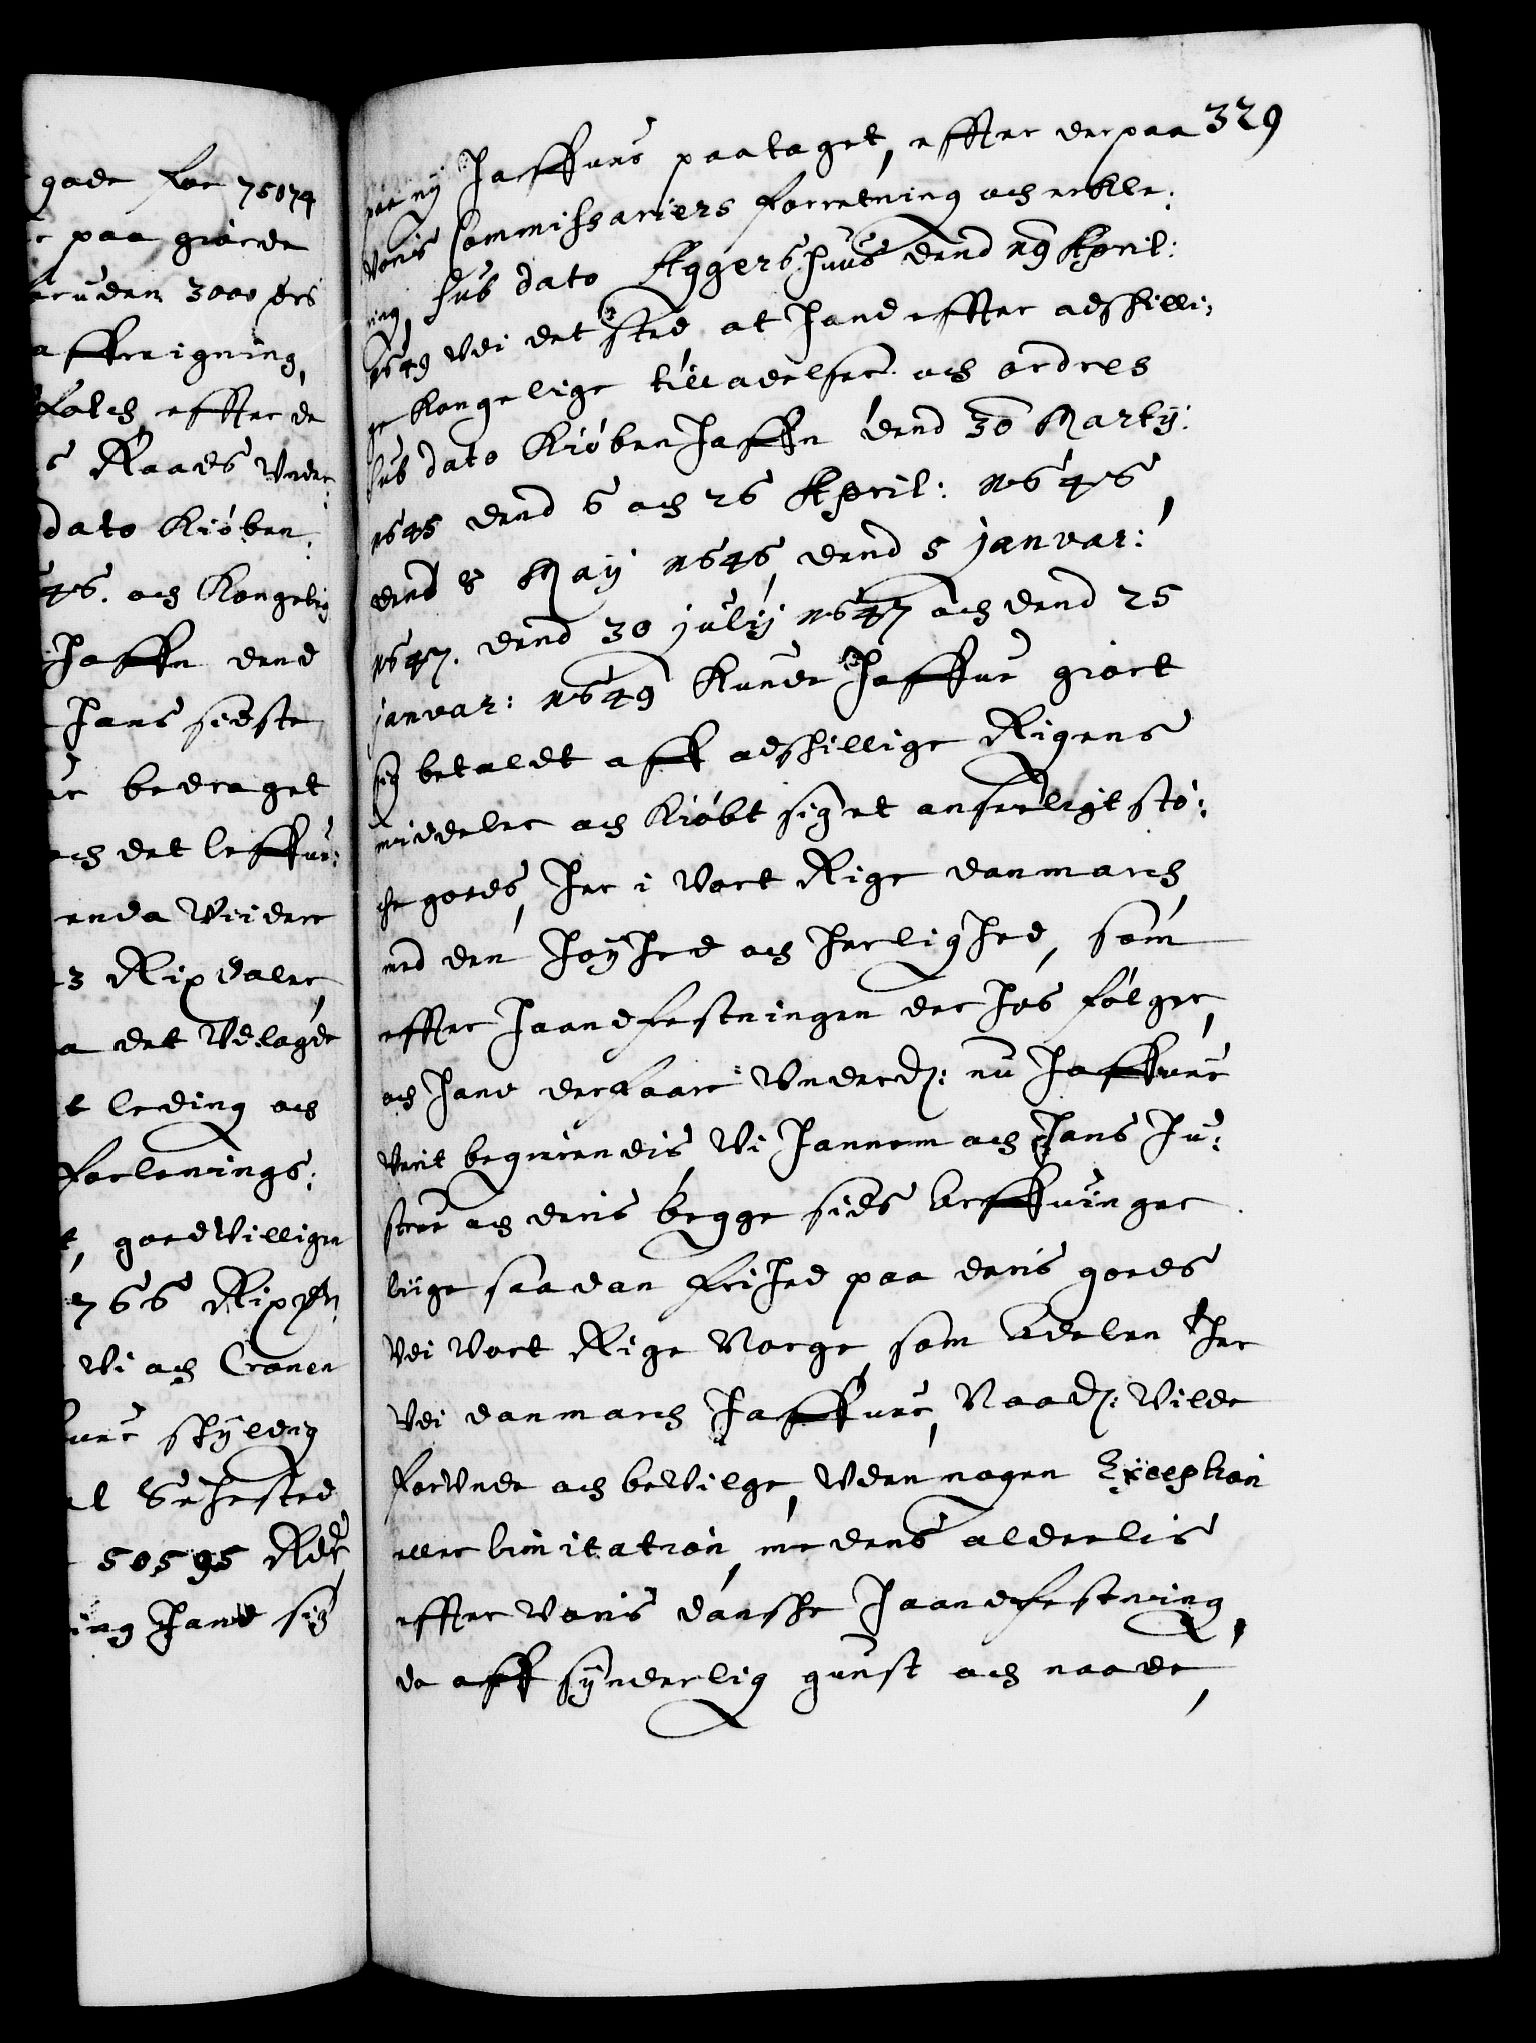 gode for 75074
paa giorde
3000 pris
affreigning,
folch, effter de
s Raads Under¬
dato Kiøben¬
46. och Kongelig
haffn dend
hans sidste
bedraget
och det leffue¬
enda Viidere
3 Rixdaler,
a det Udlagde
t leding och
forlenings¬
t, goedvilligen
766 Rix
Vi och Cronen
skyldig
Sehested
50595 Rdr
ing hand sig
329
paa ny haffuer paataget, effter der paa
Voris Commissariers forretning och erkle¬
ring, sub dato Aggershuus dend 19 April:
1649 Udi det sted, at hand effter adskilli¬
ge Kongelige tilladelser och ordres
sub dato Kiøbenhaffn dend 30 Marty:
1645 dend 6 och 26 April: 1646,
dend 8 Maij 1646, dend 5 januar:
1647. dend 30 julij 1647 och dend 25
januar: 1649 Kunde haffue giort
sig betaldt aff adskillige Rigens
mideler och Kiøbt sig et anseeligt stø¬
che goeds, her i Vort Rige Danmarch,
med den høyhed och herlighed, som
effter haandfestningen der hos følger,
och hand derfaare Underd: nu haffuer
Verit begierendis, Vi hannem och hans Hu¬
strue och deris begge sids Arffuinger
liige saadan frihed paa deris goeds
Udi Vort Rige Norge, som Adelen her
Udi Danmarch haffuer, Naad: Vilde
forUnde och beVilge, Uden nogen Exception
eller limitation, medens alderlis
effter Voris danske haandfestning,
da aff synderlig gunst och naade,